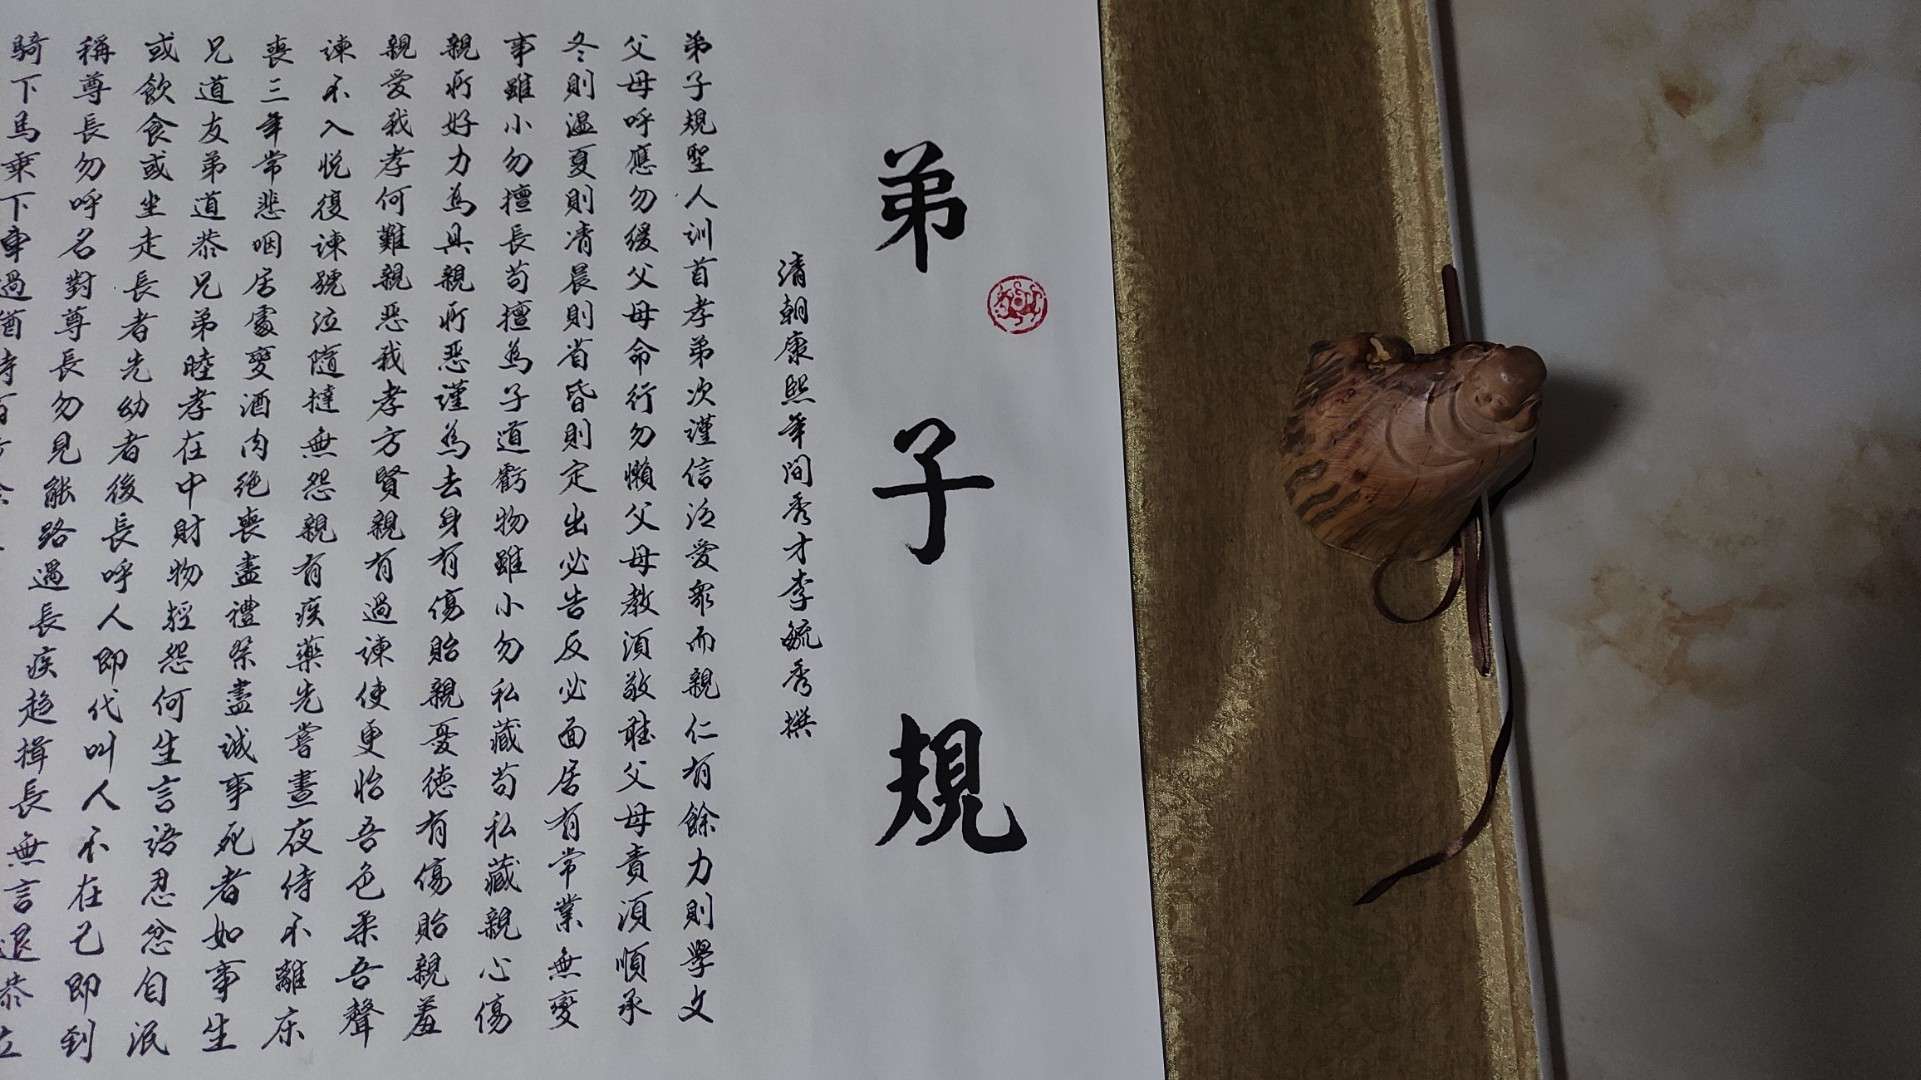 弟子規
清朝康熙年間秀才李毓秀撰
弟子規聖人訓首孝弟次謹信泛愛眾而親仁有餘力則學文
父母呼應勿緩父母命行勿懶父母教須敬聽父母責須順承
冬則溫夏則凊晨則省昏則定出必告反必面居有常業無變
事雖小勿擅長苟擅為子道虧物雖小勿私藏苟私藏親心傷
親所好力為具親所惡謹為去身有傷貽親憂德有傷貽親羞
親愛我孝何難親惡我孝方賢親有過諫使更怡吾色柔吾聲
諫不入悅復諫號泣隨撻無怨親有疾藥先嘗晝夜侍不離床
喪三年常悲咽居處變酒肉絕喪盡禮祭盡誠事死者如事生
兄道友弟道恭兄弟睦孝在中財物輕怨何生言語忍忿自泯
或飲食或坐走長者先幼者後長呼人即代叫人不在己即到
稱尊長勿呼名對尊長勿見能路遇長疾趨揖長無言退恭立
騎下馬乘下車過猶待百